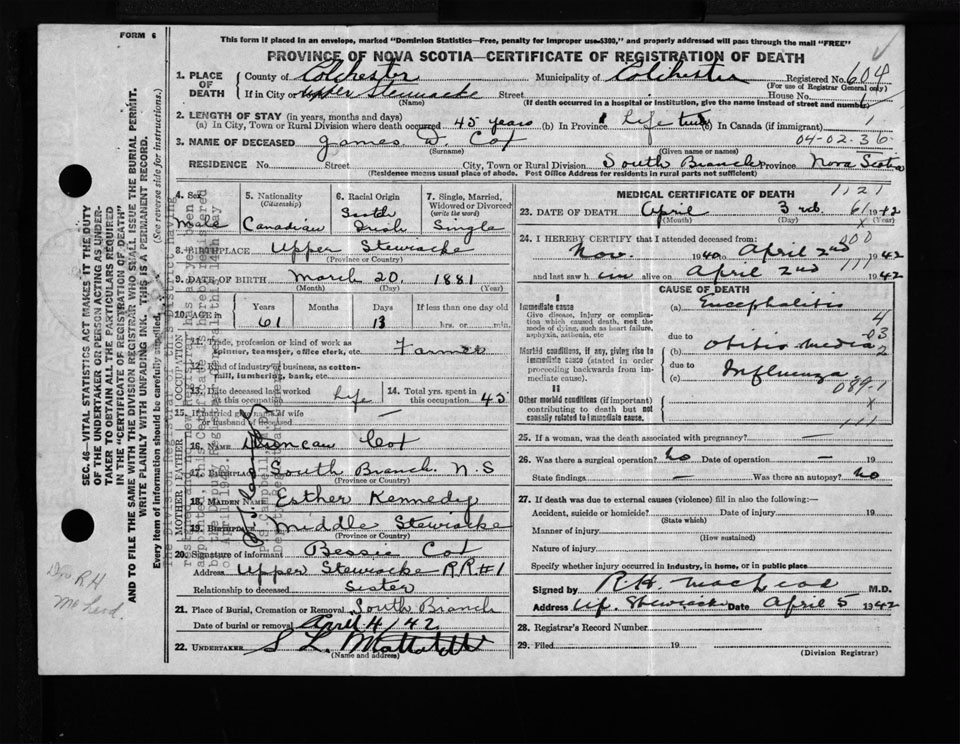 FORM 6
This form if placed in an envelope, marked "Dominion Statistics—Free, penalty for improper use $300," and properly addressed will pass through the mail "FREE"
PROVINCE OF NOVA SCOTIA—CERTIFICATE OF REGISTRATION OF DEATH
1. PLACE OF DEATH County of Colchester Municipality of Colchester Registered No. 604
(For use of Registrar General only)
If in City or Upper Stewiacke Street House No.
(Name) (If death occurred in a hospital or institution, give the name instead of street and number)
2. LENGTH OF STAY (in years, months and days)
(a) In City, Town or Rural Division where death occurred 45 years (b) In Province Life time (c) In Canada (if immigrant)
3. NAME OF DECEASED James D. Cox 04-02-36
(Surname) (Given name or names)
RESIDENCE No. Street City, Town or Rural Division South Branch Province Nova Scotia
(Residence means usual place of abode. Post Office Address for residents in rural parts not sufficient)
4. Sex Male
5. Nationality (Citizenship) Canadian
6. Racial Origin Scotch Irish
7. Single, Married, Widowed or Divorced (write the word) Single
8. BIRTHPLACE Upper Stewiacke
(Province or Country)
9. DATE OF BIRTH March 20 1881
(Month) (Day) (Year)
10. AGE Years Months Days If less than one day old
61 13 hrs. or min.
OCCUPATION
11. Trade, profession or kind of work as spinner, teamster, office clerk, etc. Farmer
12. Kind of industry or business, as cotton-mill, lumbering, bank, etc.
13. Date deceased last worked at this occupation Life 14. Total yrs. spent in this occupation 45
15. If married give name of wife or husband of deceased —
FATHER
16. NAME Duncan Cox
17. BIRTHPLACE South Branch. N.S
(Province or Country)
MOTHER
18. MAIDEN NAME Esther Kennedy
19. BIRTHPLACE Middle Stewiacke
(Province or Country)
20. Signature of informant Bessie Cox
Address Upper Stewiacke R.R.#1
Relationship to deceased Sister
21. Place of Burial, Cremation or Removal South Branch
Date of burial or removal April 4/42
22. UNDERTAKER S L
(Name and address)
MEDICAL CERTIFICATE OF DEATH 1121
23. DATE OF DEATH April 3rd 61 1942
(Month) (Day)
24. I HEREBY CERTIFY that I attended deceased from:
Nov. 1940 to April 2nd 1942
and last saw him alive on April 2nd 1942
CAUSE OF DEATH
I
Immediate cause
Give disease, injury or complication which caused death, not the mode of dying, such as heart failure, asphyxia, asthenia, etc
(a) Encephalitis
due to
Morbid conditions, if any, giving rise to immediate cause (stated in order proceeding backwards from immediate cause).
(b) Otitis Media
due to
(c) Influenza
089-1
II
Other morbid conditions (if important) contributing to death but not causally related to immediate cause.
111
25. If a woman, was the death associated with pregnancy? —
26. Was there a surgical operation? No Date of operation — 19
State findings — Was there an autopsy? No
27. If death was due to external causes (violence) fill in also the following:
Accident, suicide or homicide? Date of injury 19
(State which)
Manner of injury
(How sustained)
Nature of injury
Specify whether injury occurred in industry, in home, or in public place
Signed by R.H. MacLeod M.D.
Address Up. Stewiacke Date April 5 1942
28. Registrar's Record Number
29. Filed 19
(Division Registrar)
SEC. 46—VITAL STATISTICS ACT MAKES IT THE DUTY
OF THE UNDERTAKER OR PERSON ACTING AS UNDERTAKER TO OBTAIN ALL THE PARTICULARS REQUIRED
IN THE "CERTIFICATE OF REGISTRATION OF DEATH"
AND TO FILE THE SAME WITH THE DIVISION REGISTRAR WHO SHALL ISSUE THE BURIAL PERMIT.
WRITE PLAINLY WITH UNFADING INK. THIS IS A PERMANENT RECORD.
Every item of Information should be carefully supplied. (See reverse side for instructions.)
Dr R H
McLeod